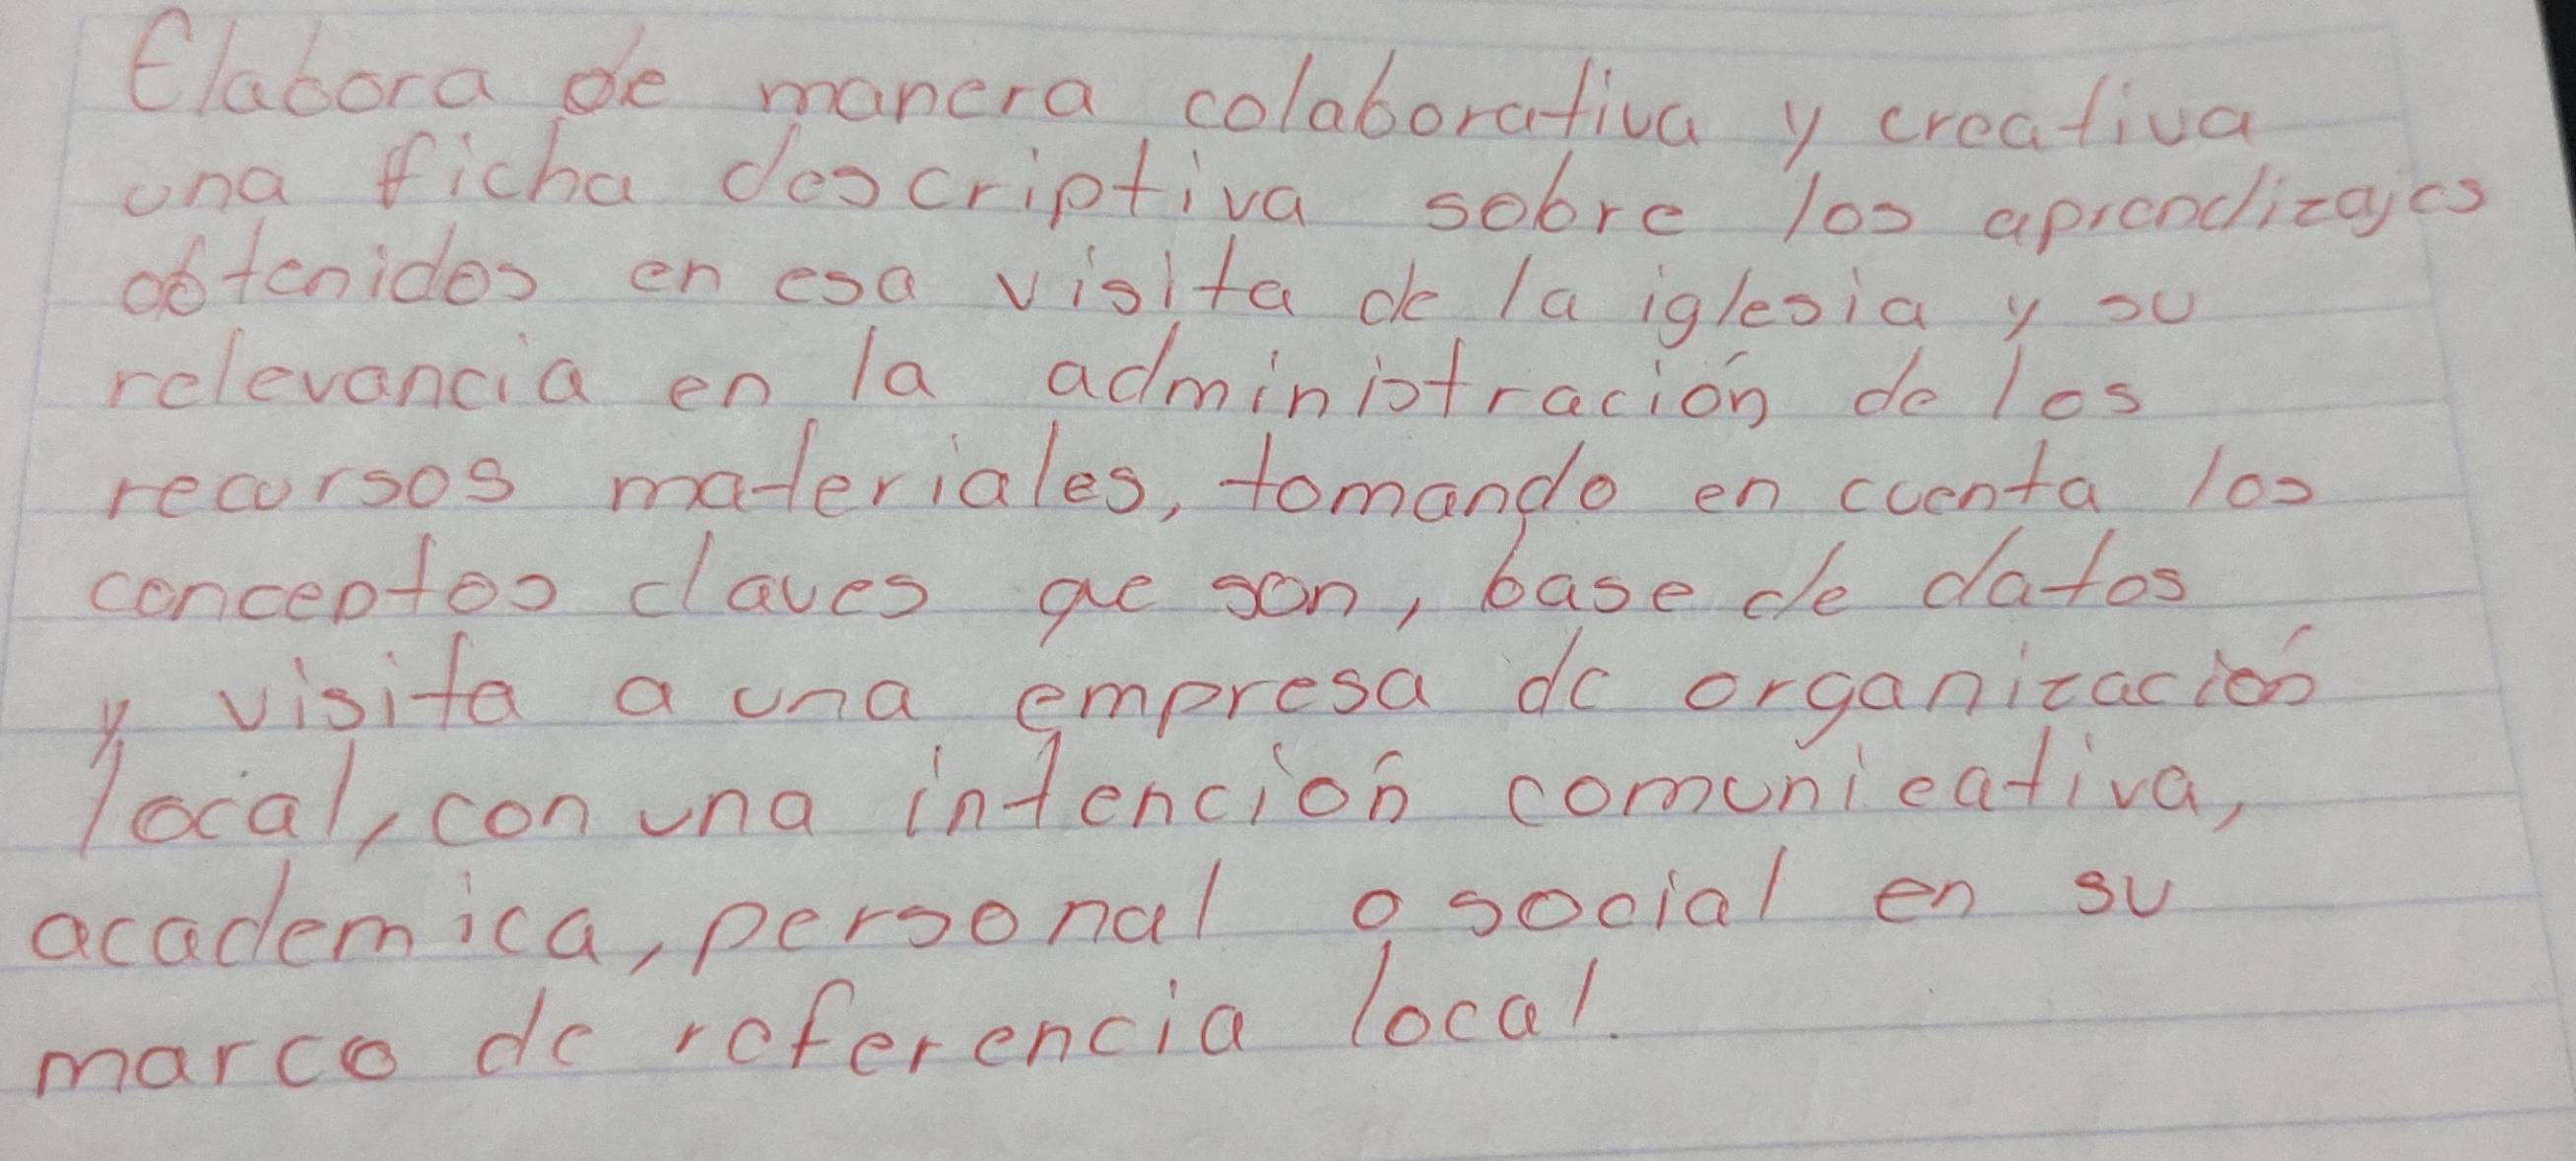 Elabora de manera colaborativa y creativa
una ficha descriptiva sobre los aprendizajes
obtenidos en esa visita de la iglesia y su
relevancia en la administración de los
recursos materiales, tomando en cuenta los
conceptos claves qe son, base de datos
y visita a una empresa de organización
local, con una intención comunicativa,
academica, personal o social en su
marco de referencia local.